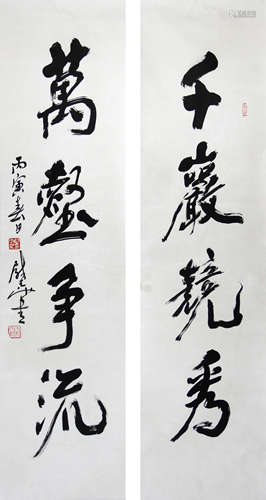 千巖競秀
萬壑爭流
丙寅春日